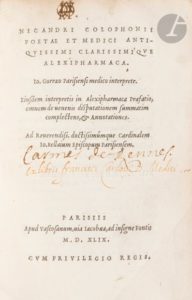 NICANDRI COLOPHONII
POETAE ET MEDICI ANTI-
QVISSIMI CLARISSIMIQVE
ALEXIPHARMACA.
Io. Gorræo Parisiensi medico interprete.
Eiusdem interpretis in Alexipharmaca Præfatio,
omnem de venenis disputationem summatim
complectens, & Annotationes.
Ad Reverendiss. doctissimumque Cardinalem
Io. Bellaium Episcopum Parisiensem.
Carmes de Rennes
Ex libris
PARISIIS
Apud Vascosanum, via Iacobæa, ad insigne Fontis
M. D. XLIX.
CVM PRIVILEGIO REGIS.